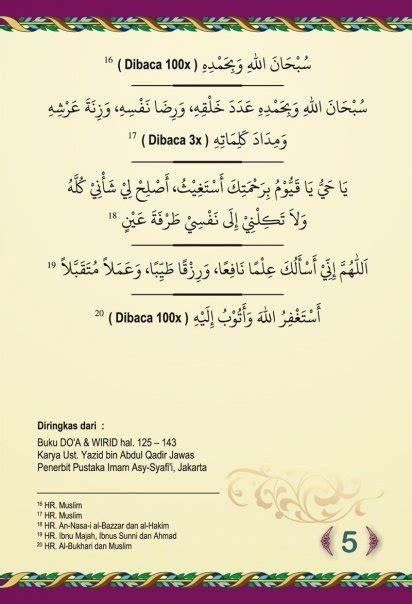 سُبْحَانَ اللهِ وَبِحَمْدِهِ ( Dibaca 100x ) 16
سُبْحَانَ اللهِ وَبِحَمْدِهِ عَدَدَ خَلْقِهِ، وَرِضَا نَفْسِهِ، وَزِنَةَ عَرْشِهِ
وَمِدَادَ كَلِمَاتِهِ ( Dibaca 3x ) 17
يَا حَيُّ يَا قَيُّوْمُ بِرَحْمَتِكَ أَسْتَغِيْثُ، أَصْلِحْ لِيْ شَأْنِيْ كُلَّهُ
وَلاَ تَكِلْنِيْ إِلَى نَفْسِيْ طَرْفَةَ عَيْنٍ 18
اَللَّهُمَّ إِنِّيْ أَسْأَلُكَ عِلْمًا نَافِعًا، وَرِزْقًا طَيِّبًا، وَعَمَلاً مُتَقَبَّلاً 19
أَسْتَغْفِرُ اللهَ وَأَتُوْبُ إِلَيْهِ ( Dibaca 100x ) 20
Diringkas dari :
Buku DO'A & WIRID hal. 125 – 143
Karya Ust. Yazid bin Abdul Qadir Jawas
Penerbit Pustaka Imam Asy-Syafi'i, Jakarta
16 HR. Muslim
17 HR. Muslim
18 HR. An-Nasa-i al-Bazzar dan al-Hakim
19 HR. Ibnu Majah, Ibnus Sunni dan Ahmad
20 HR. Al-Bukhari dan Muslim
5